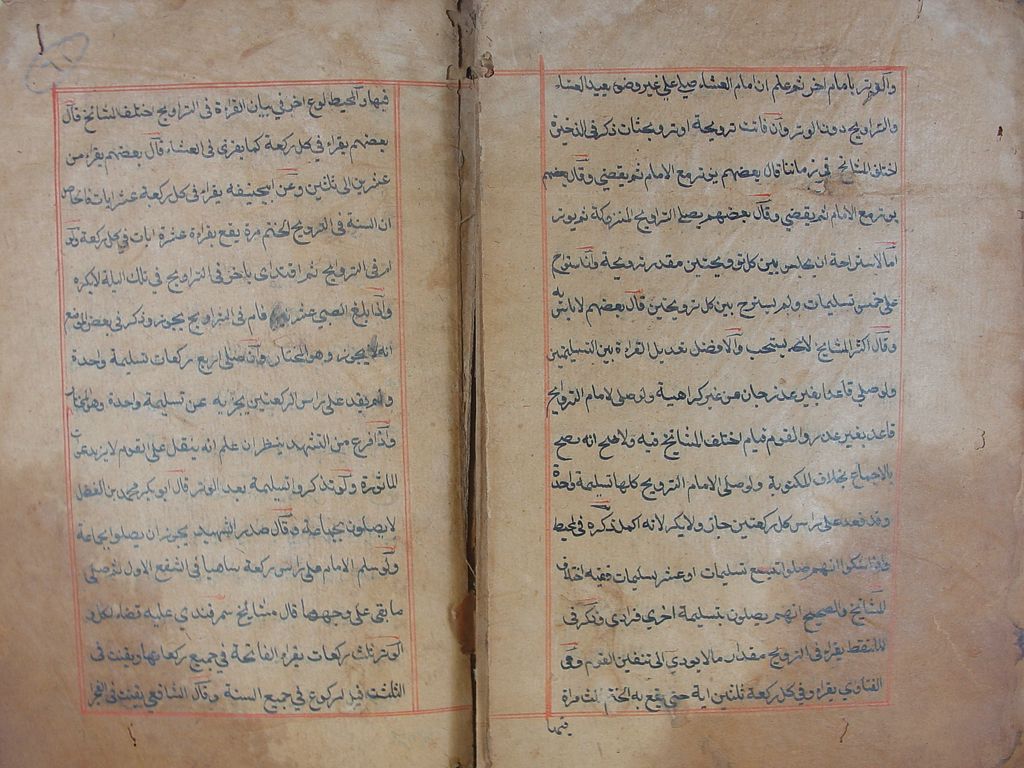 والوتر بامام اخر ثم علم ان امام العشاء صلي على غير وضوء يعيد العشاء
والتراويح دون الوتر وان فاتت ترويحة او ترويحتات ذكر في الذخيرة
اختلف المشايخ في زماننا قال بعضهم يوتر مع الامام ثم يقضي وقال بعضهم
يوتر مع الامام ثم يقضي وقال بعضهم يصلي التراويح المتروكة ثم يوتر
اما الاستراحة ان يجلس بين كل ترويحتين مقدر ترويحة وان استراح
على خمس تسليمات ولم يسترح بين كل ترويحتين قال بعضهم لا باس به
وقال اكثر المشايخ لا يستحب والافضل تعديل القراءة بين التسليمتين
ولو صلى قاعدا بغير عذر جان من غير كراهية ولو صلى الامام التراويح
قاعد بغير عذر والقوم قيام اختلف المشايخ فيه والاصح انه يصح
بالاجماع بخلاف المكتوبة ولو صلى الامام الترويح كلها تسليمة واحدة
وقد قعد على راس كل ركعتين جاز ولا يكر لانه اكمل ذكره في المحيط
واذا شكوا انهم صلوا تسع تسليمات او عشر تسليمات ففيه اختلاف
المشايخ والصحيح انهم يصلون بتسليمة اخري فرادي وذكر في
الملتقط يقراء في الترويح مقدار ما لا يودي الى تنفير القوم وفي
الفتاوي يقراء في كل ركعة ثلثين اية حتى يقع به الختم ثلث مراة
فيها
فيها وفي المحيط نوع اخر في بيان القراءة في التراويح اختلف المشايخ قال
بعضهم يقراء في كل ركعة كما يقرى في العشاء قال بعضهم يقراء من
عشرين الى ثلثين وعن ابيحنيفه يقراء في كل ركعة عشر ايات فالحاصل
ان السنة في الترويح الختم مرة يقع بقراءة عشرة ايات في كل ركعة ولو
ام في الترويح ثم اقتداى باخر في التراويح في تلك اليلة لا يكره
واذا بلغ الصبي عشر فام في التراويح يجوز وذكر في بعض المواضع
انه لا يجوز وهو المختار وان صلى اربع ركعات تسليمة واحدة
ولم يقعد على راس الركعتين يجزيه عن تسليمة واحدة وهو المختار
واذا فرغ من التشهد ينظر ان علم انه يثقل على القوم لا يزيد عن
الماثورة ولو تذكروا تسليمة بعد الوتر قال ابو بكر محمد بن الفضل
لا يصلون بجماعة وقال صدر الشهيد يجوز ان يصلوا بجماعة
ولو سلم الامام على راس ركعة ساهيا في الشفع الاول ثم صلى
ما بقى على وجهها قال مشايخ سمرقندي عليه قضاء الاول
الوتر ثلث ركعات يقراء الفاتحة في جميع ركعاتها ويقنت في
الثلثت قبل الركوع في جميع السنة وقال الشافعي يقنت في الفجر